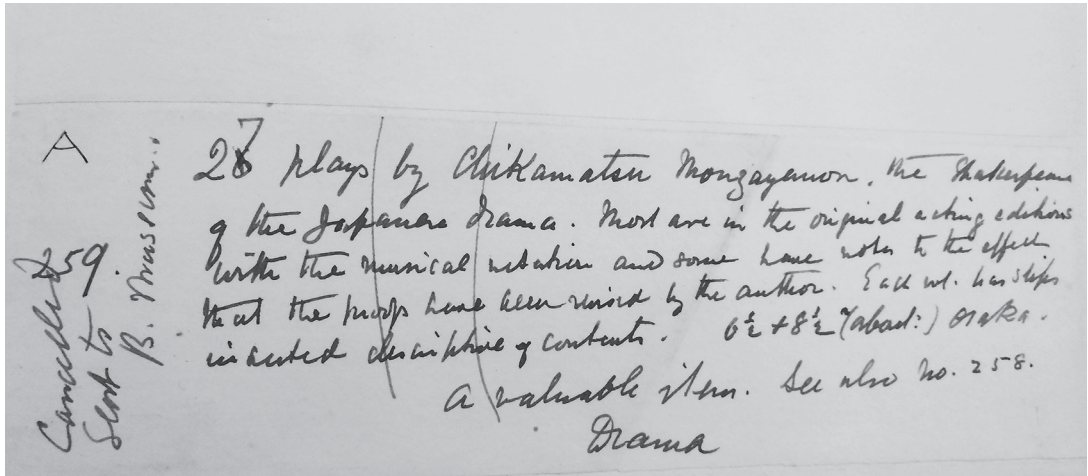 A
27 plays by Chikamatsu Monzayemon, the Shakespeare
of the Japanese drama. Most are in the original acting editions
with the musical notation and some have notes to the effect
that the proofs have been revised by the author. Each vol. has slips
inserted descriptive of contents. 6½ + 8½ " (about:) Osaka.
A valuable item. See also No. 258.
Drama
Cancelled 259.
Sent to
B. Museum.